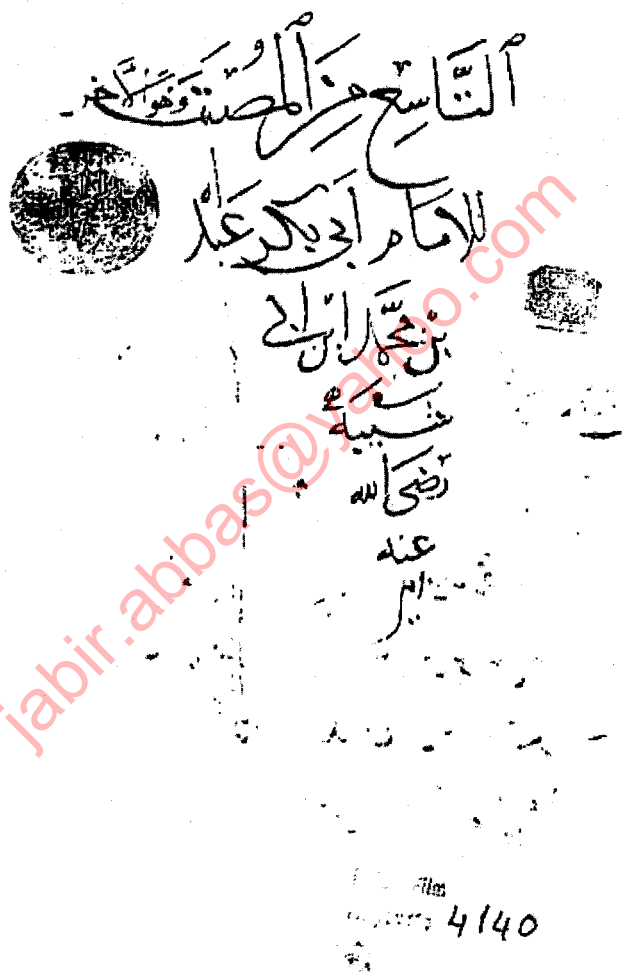 التَّاسِع مِنَ المُصَنف وَهُوَ الآخر
للامَام أبي بكر عَبد
بن محمَّد ابن ابي
شَيبَة
رَضيَ الله
عنه
jabir.abbas@yahoo.com
Film
4140